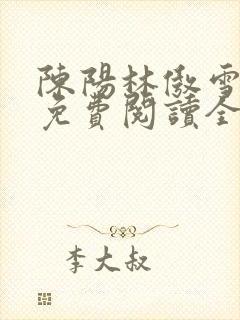 陳陽林傲雪
免費閱讀全
李大叔